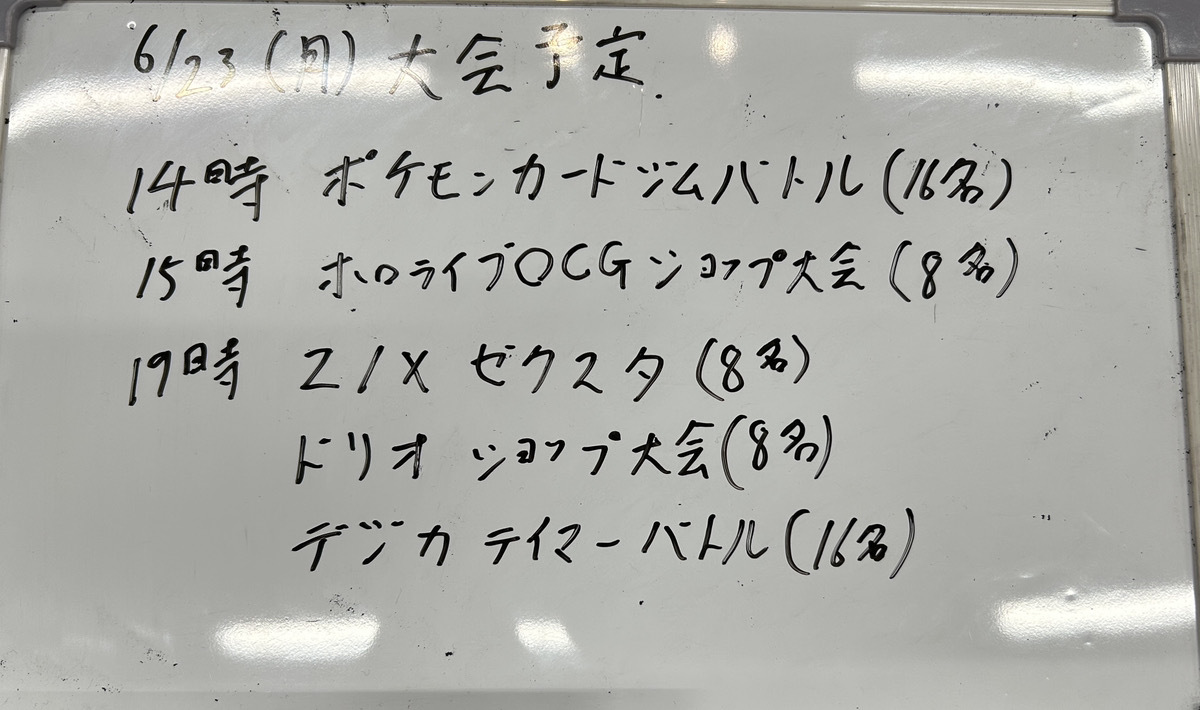 6/23(月)大会予定
14時 ポケモンカードジムバトル(16名)
15時 ホロライブOCGショップ大会(8名)
19時 Z/X ゼクスタ(8名)
ドリオ ショップ大会(8名)
デジカ テイマーバトル(16名)